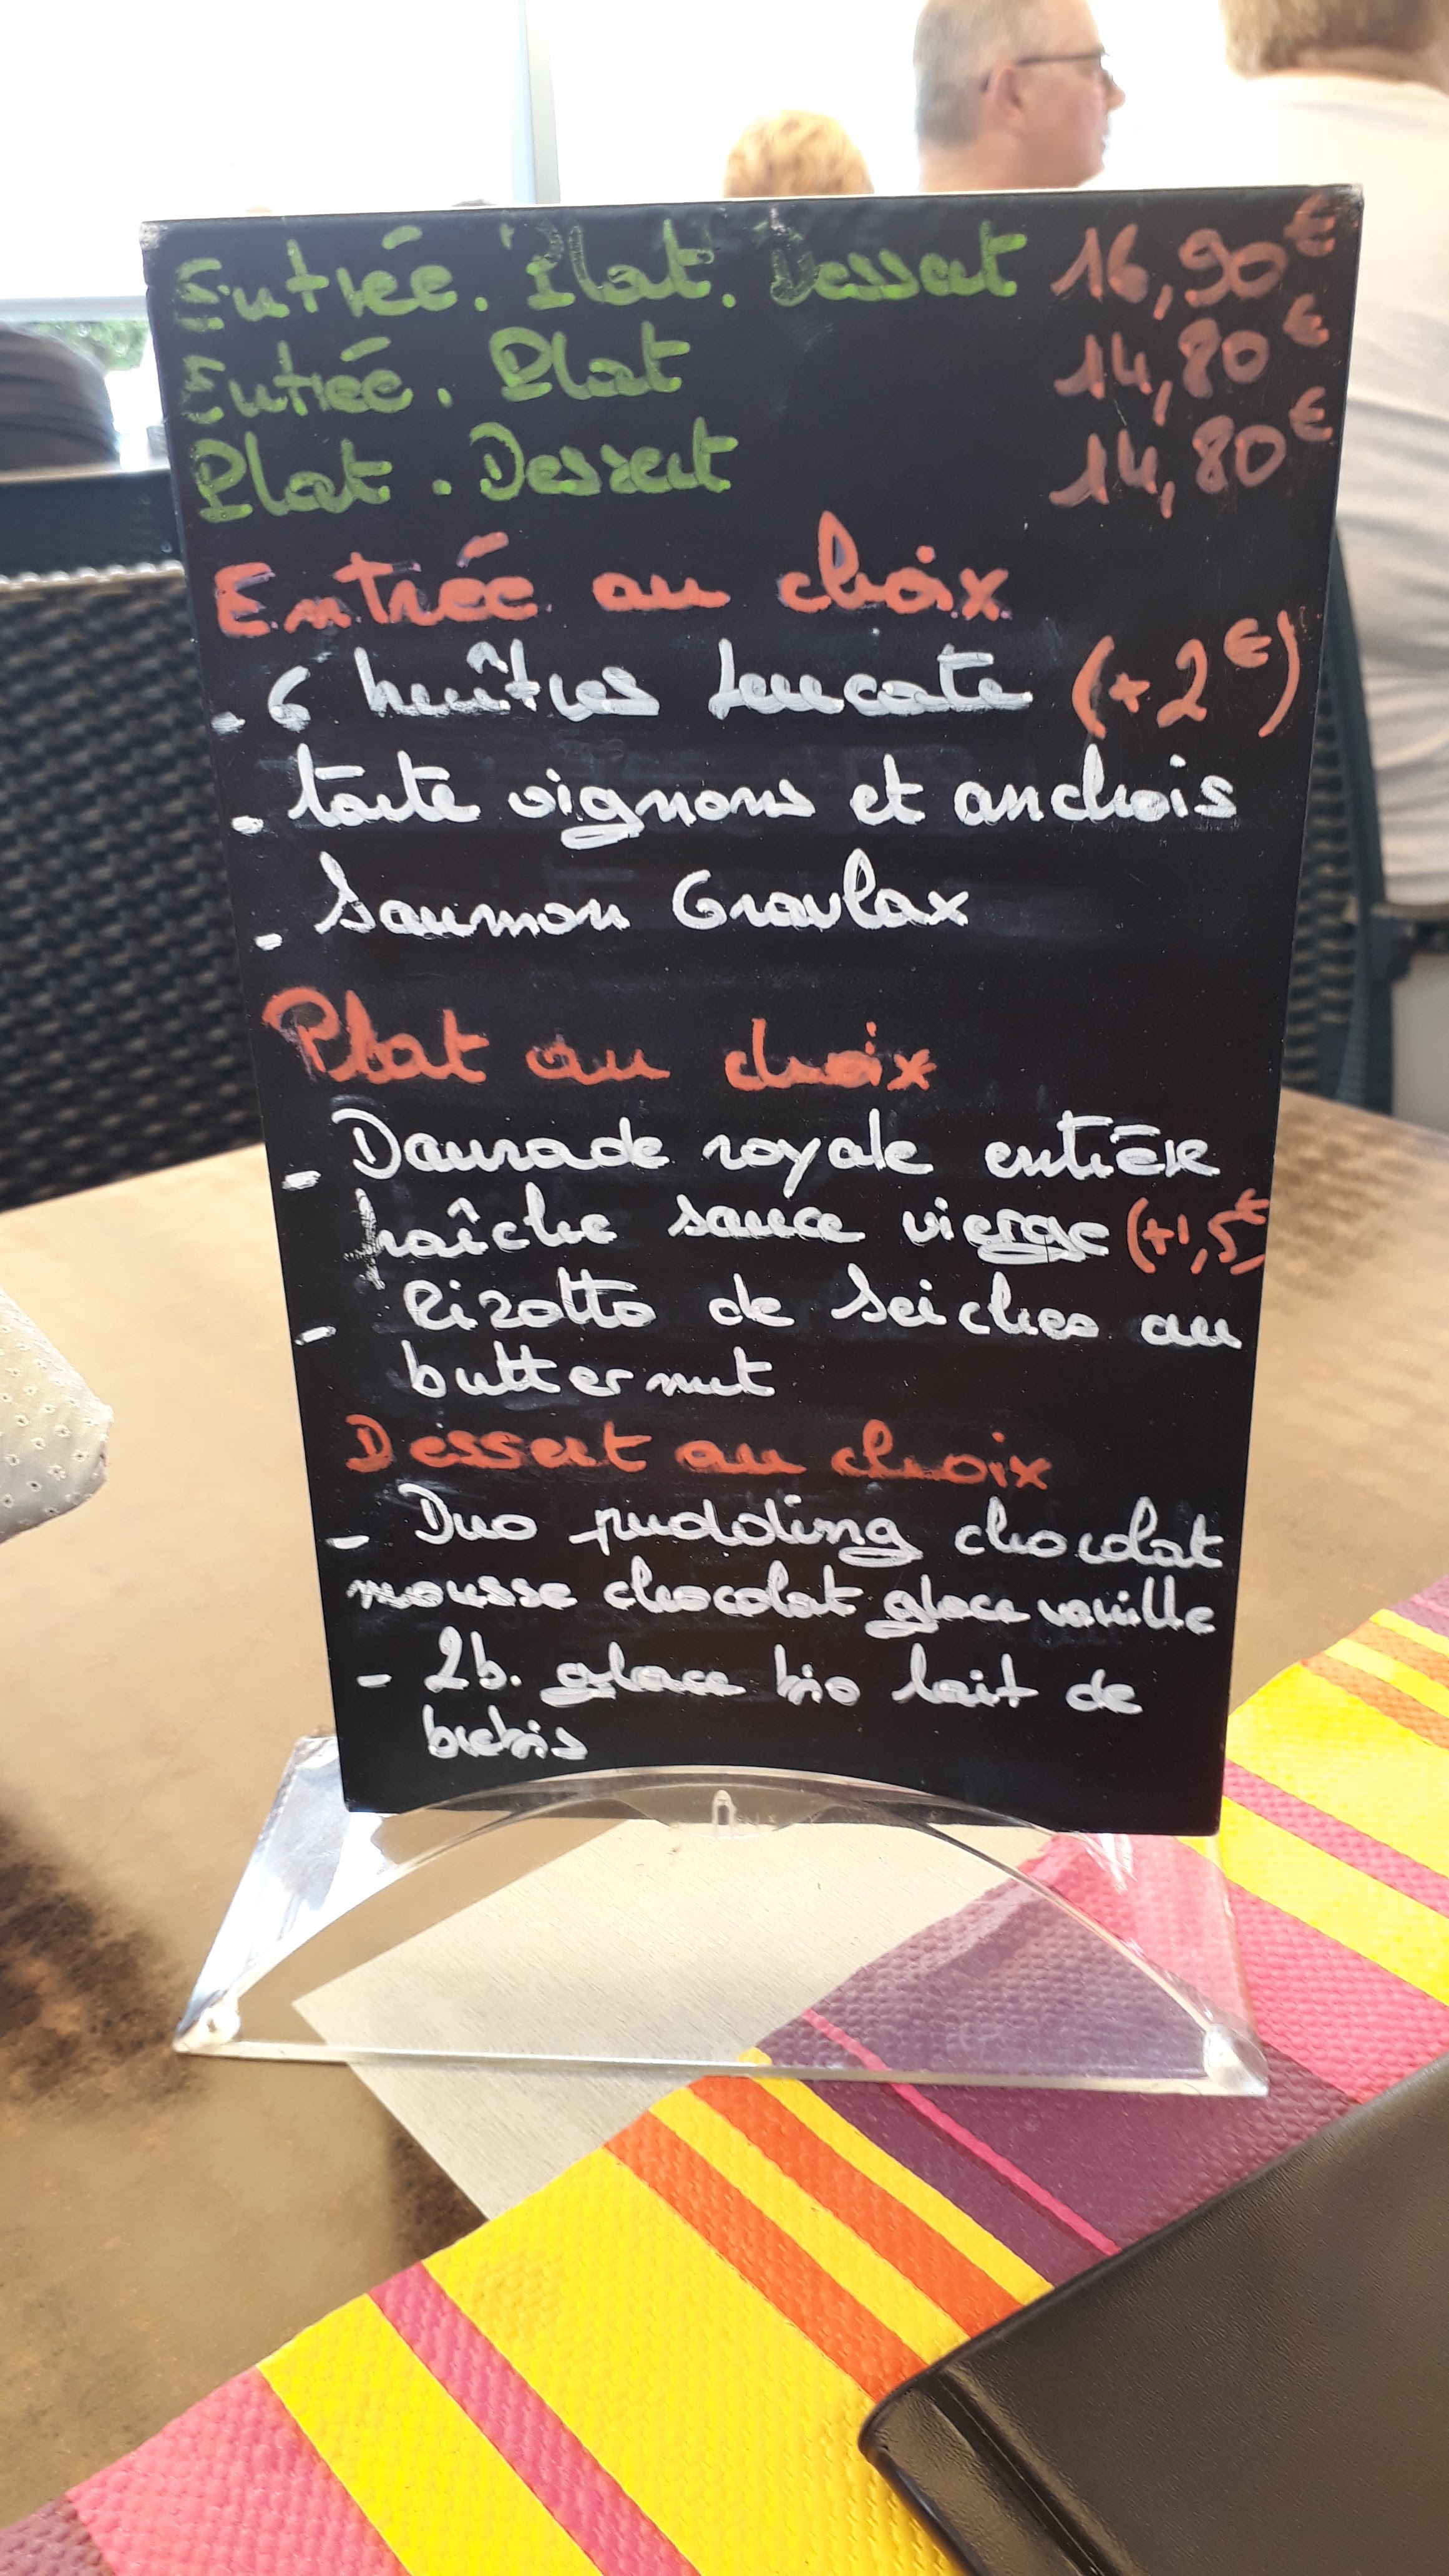 Entrée. Plat. Dessert 16,90€
Entrée. Plat 14,80€
Plat. Dessert 14,80€
Entrée au choix
- 6 huîtres Leucate (+2€)
- tarte oignons et anchois
- Saumon Gravlax
Plat au choix
- Daurade royale entière
fraîche sauce vierge (+1,5€
- Rizotto de Seiches au
butternut
Dessert au choix
- Duo pudding chocolat
mousse chocolat glace vanille
- 2b. glace bio lait de
brebis